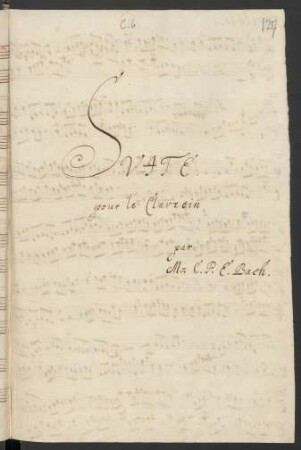 C. b
127
SVITE
pour le Clavecin
par
Mr. C. P. E. Bach.